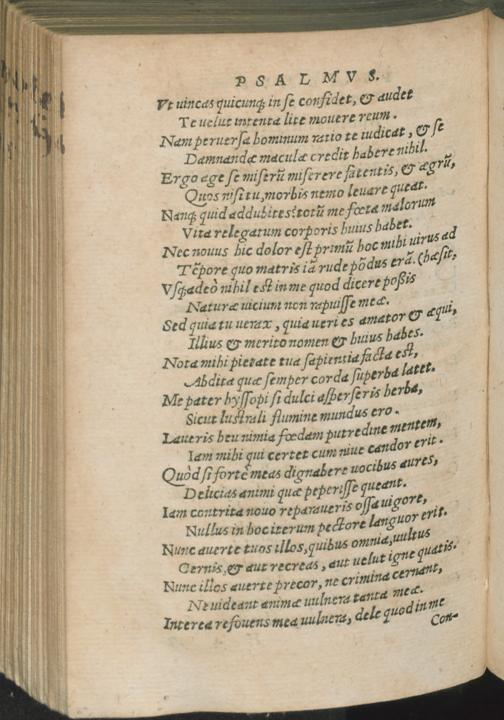 PSALMVS.
Vt uincas quicunq; in se confidet, & audet
Te uelut intenta lite mouere reum.
Nam peruersa hominum ratio te iudicat, & se
Damnandæ maculæ credit habere nihil.
Ergo age se miserũ miserere fatentis, & ægrũ,
Quos nisi tu, morbis nemo leuare queat.
Nanq; quid addubites? totũ me fœta malorum
Vita relegatum corporis huius habet.
Nec nouus hic dolor est primũ hoc mihi uirus ad
Tẽpore quo matris iã rude põdus erã. (hæsit,
Vsq;adeò nihil est in me quod dicere poßis
Naturæ uicium non rapuisse meæ.
Sed quia tu uerax, quia ueri es amator & æqui,
Illius & merito nomen & huius habes.
Nota mihi pietate tua sapientia facta est,
Abdita quæ semper corda superba latet.
Me pater hyssopi si dulci asperseris herba,
Sicut lustrali flumine mundus ero.
Laueris heu nimia fœdam putredine mentem,
Iam mihi qui certet cum niue candor erit.
Quòd si fortè meas dignabere uocibus aures,
Delicias animi quæ peperisse queant.
Iam contrita nouo reparaueris ossa uigore,
Nullus in hoc iterum pectore languor erit.
Nunc auerte tuos illos, quibus omnia, uultus
Cernis, & aut recreas, aut uelut igne quatis.
Nunc illos auerte precor, ne crimina cernant,
Ne uideant animæ uulnera tanta meæ.
Interea refouens mea uulnera, dele quod in me
Con-